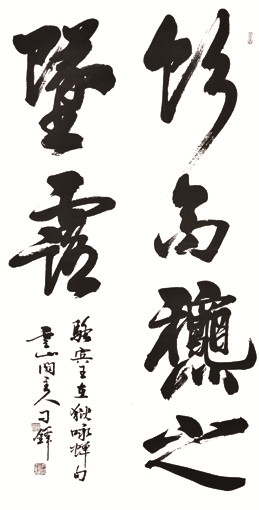 飲高龝之
墜露
駱賓王在獄咏蟬句
山閣主人刁